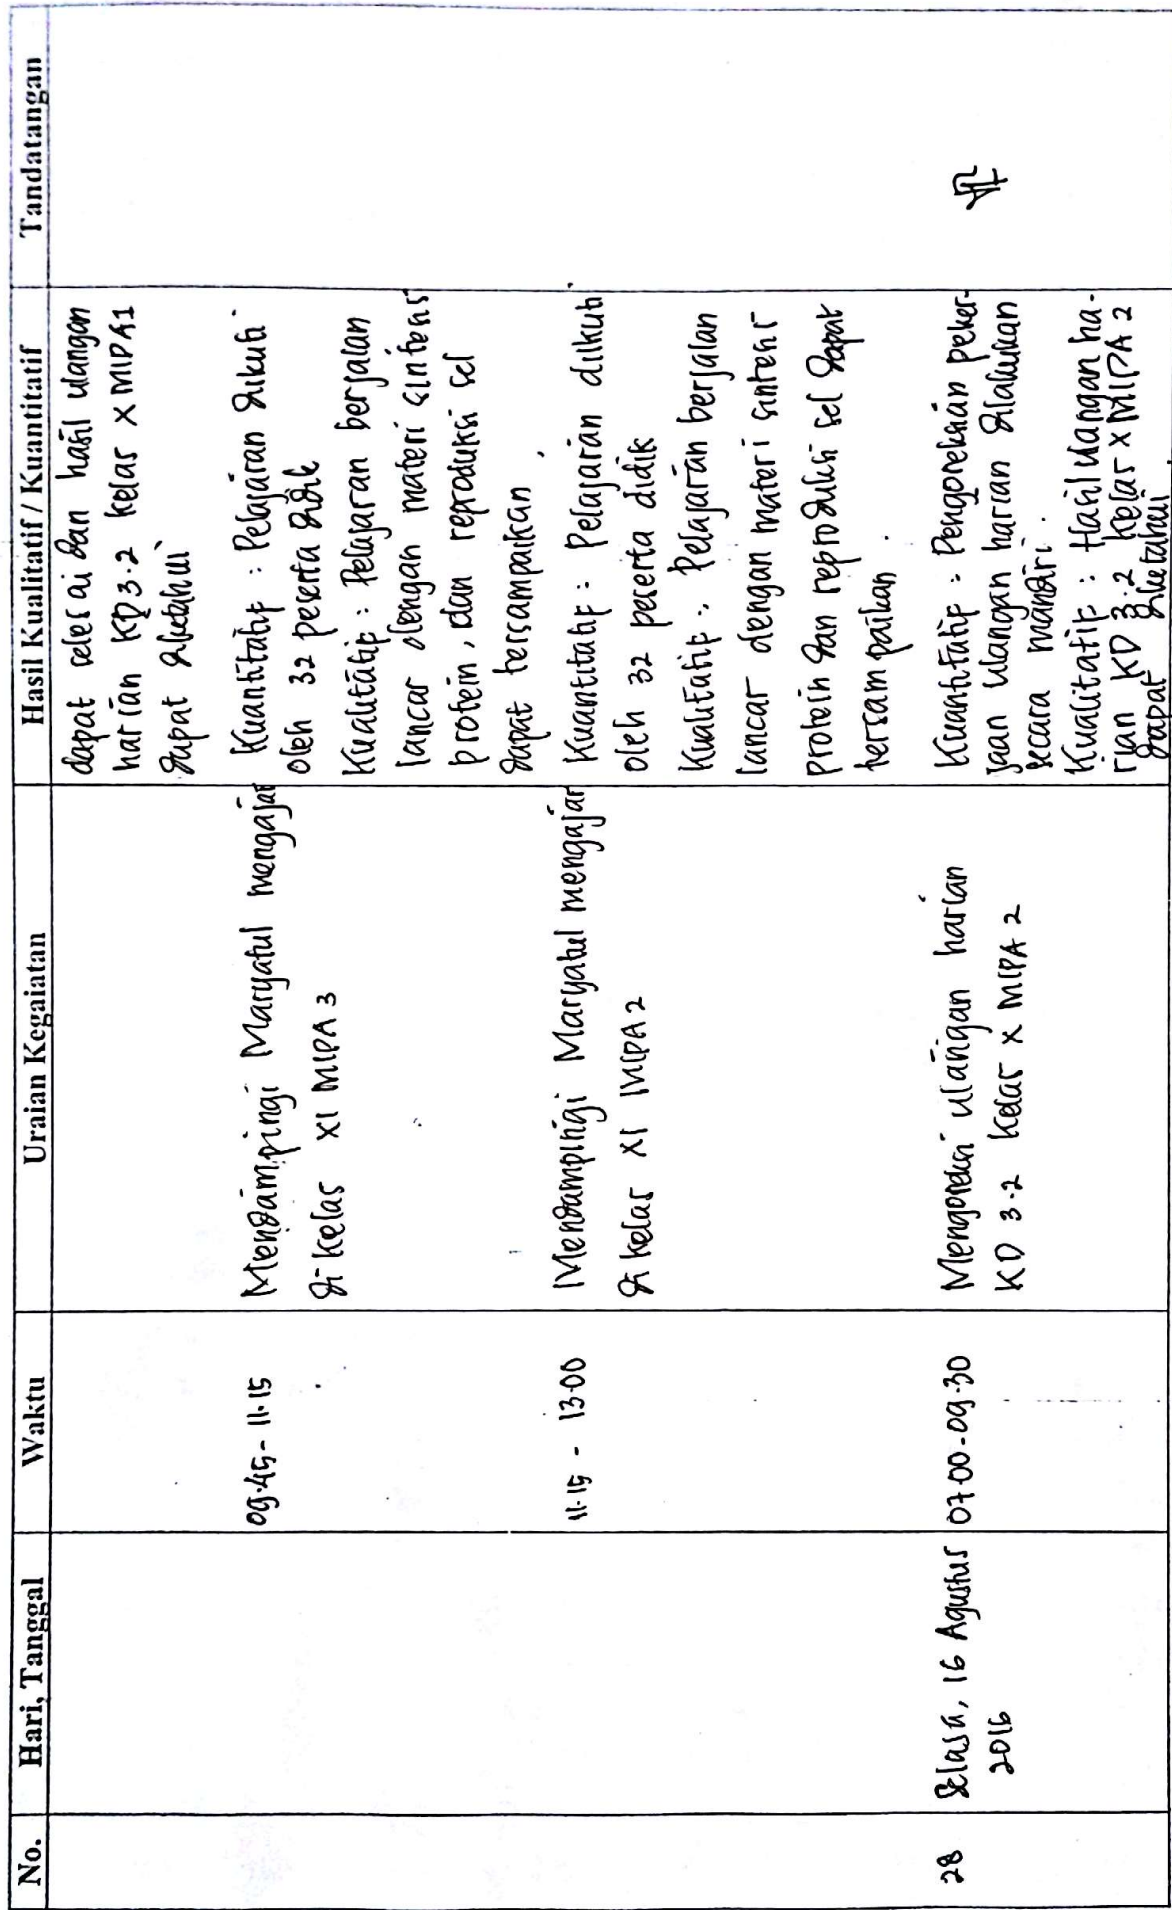 No. Hari, Tanggal Waktu Uraian Kegaiatan Hasil Kualitatif / Kuantitatif Tandatangan
dapat selesai dan hasil ulangan
harian KD 3.2 kelas X MIPA1
dapat diketahui
09.45 - 11.15
Mendampingi Maryatul mengajar
di kelas XI MIPA 3
Kuantitatif : Pelajaran diikuti
oleh 32 peserta didik
Kualitatif : Pelajaran berjalan
lancar dengan materi sintesis
protein, dan reproduksi sel
dapat tersampaikan.
11.15 - 13.00
Mendampingi Maryatul mengajar
di kelas XI MIPA 2
Kuantitatif : Pelajaran diikuti
oleh 32 peserta didik
Kualitatif : Pelajaran berjalan
lancar dengan materi sintesis
protein dan reproduksi sel dapat
tersampaikan.
28
Selasa, 16 Agustus
2016
07.00 - 09.30
Mengoreksi ulangan harian
KD 3.2 Kelas X MIPA 2
Kuantitatif : Pengoreksian peker-
jaan ulangan harian dilakukan
secara mandiri.
Kualitatif : Hasil ulangan ha-
rian KD 3.2 kelas X MIPA 2
dapat diketahui